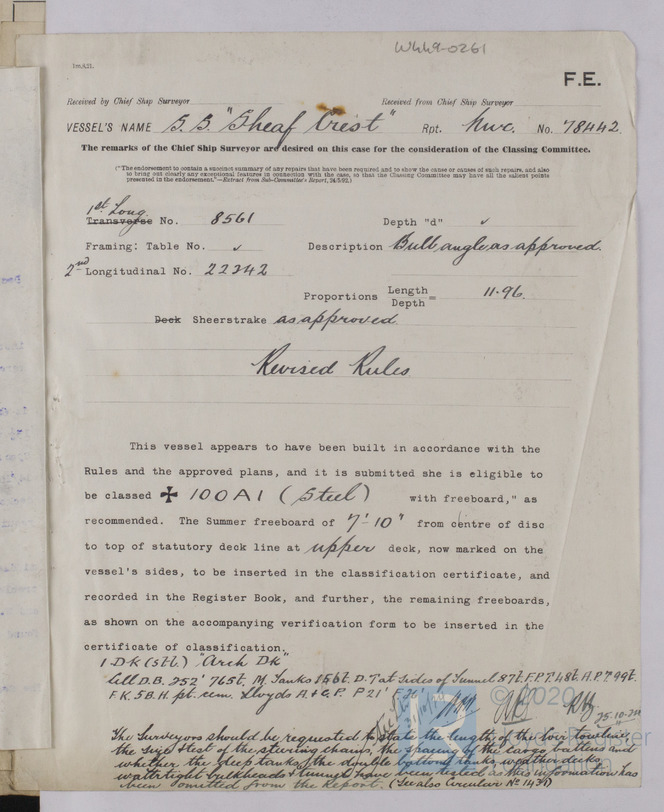 W449-0261
1m,9,21.
F.E.
Received by Chief Ship Surveyor Received from Chief Ship Surveyor
VESSEL'S NAME S.S. "Sheaf Crest" Rpt. Nwc. No. 78442.
The remarks of the Chief Ship Surveyor are desired on this case for the consideration of the Classing Committee.
("The endorsement to contain a succinct summary of any repairs that have been required and to show the cause or causes of such repairs, and also
to bring out clearly any exceptional features in connection with the case, so that the Classing Committee may have all the salient points
presented in the endorsement."—Extract from Sub-Committee's Report, 24/5/92.)
1st Long.
Transverse No. 8561 Depth "d" ✓
Framing: Table No. ✓ Description Bulb angle as approved.
2nd Longitudinal No. 22242
Proportions Length / Depth = 11.96.
Deck Sheerstrake as approved.
Revised Rules
This vessel appears to have been built in accordance with the
Rules and the approved plans, and it is submitted she is eligible to
be classed ✠ 100A1 (Steel) with freeboard," as
recommended. The Summer freeboard of 7'-10" from centre of disc
to top of statutory deck line at upper deck, now marked on the
vessel's sides, to be inserted in the classification certificate, and
recorded in the Register Book, and further, the remaining freeboards,
as shown on the accompanying verification form to be inserted in the
certificate of classification.
1 DK (stl.) "Arch DK"
Cell D.B. 252' 765t. M. Tanks 156t. D.T at sides of Tunnel 87t. F.P.T. 48t. A.P.T. 99t.
F.K. 5 B.H. pt. cem. Lloyds A. & C.P. P 21' F 36'
25.10.24
© 2020
Lloyd's Register
Foundation
The Surveyors should be requested to state the length of the towline,
the size & test of the steering chains, the spacing of the cargo battens and
whether the deep tanks of the double bottom tanks, weather decks,
watertight bulkheads & tunnel have been tested as this information has
been omitted from the Report. (See also Circular No 1434)